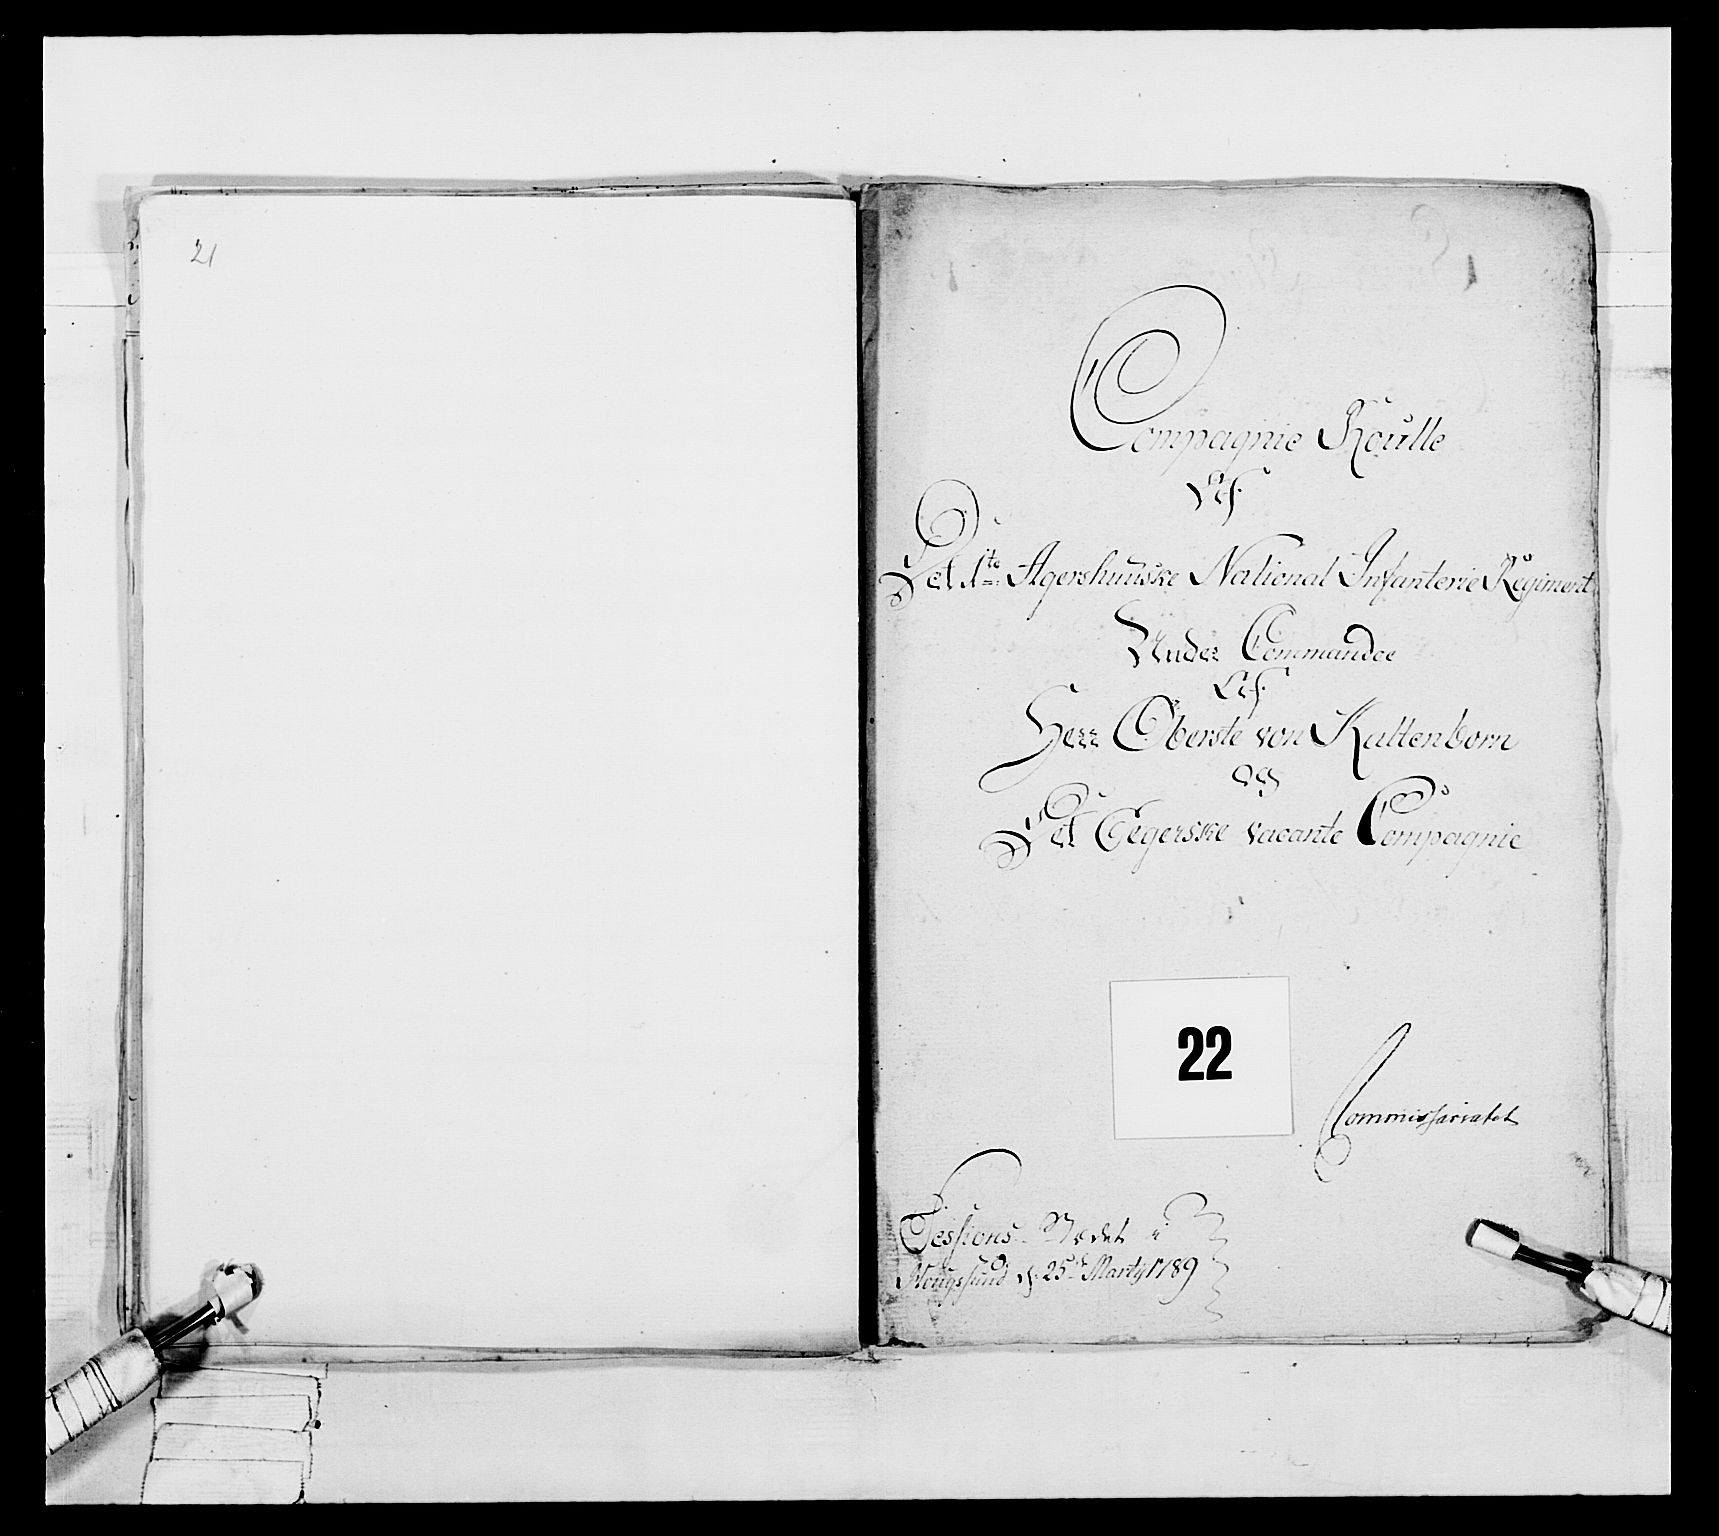 21
Compagnie Roulle
Af
Det 1ste Agershuuske National Infanterie Regiment
Under Commandoe
Af
Herr Oberste von Kaltenborn
og
Det Eegerske vacante Compagnie
22
Commissariatet
Sessions Stædet i
Hougsund d: 25de Marty 1789